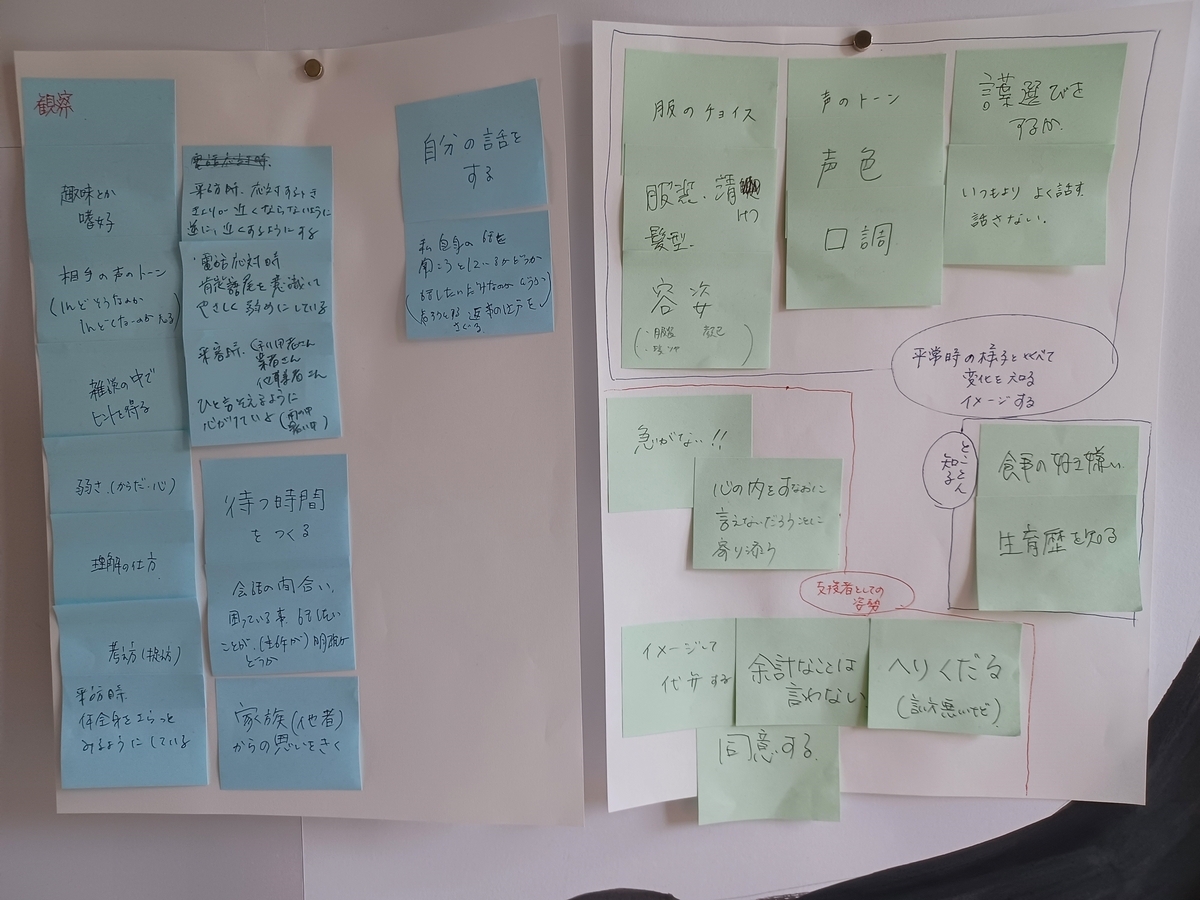 観察
趣味とか
嗜好
相手の声のトーン
(しんどそうなのか
雑談の中で
ヒントを得る
弱さ.(からだ・心)
理解の仕方
考え方(捉え方)
来訪時
体全身をさらっと
みるようにしている
電話応対時.
来訪時. 応対するとき
きょりが近くならないように
逆に、近くするようにする
・電話応対時
肯定語尾を意識して
やさしく 弱めにしている
来客時.(利用者さん
業者さん
他事業者さん
ひと言そえるように
心がけている
待つ時間
をつくる
会話の間合い、
困っている事. 話したい
ことが、(主体が) 明確か
どうか
家族(他者)
からの思いをきく
自分の話を
する
私自身の話を
聞こうとしているかどうか
話したいだけなのかどうか
服のチョイス
服装・清
けつ
髪型.
容姿
声のトーン
声色
口調
言葉選びを
するか.
いつもより よく話す.
話さない.
平常時の様子とくらべて
変化を知る
イメージする
急がない!!
心の内をすなおに
言えないだろうことに
寄り添う
とことん
知る
食事の好き嫌い.
生育歴を知る
支援者としての
姿勢
イメージして
代弁する
余計なことは
言わない
へりくだる
(言い方悪いけど)
同意する.